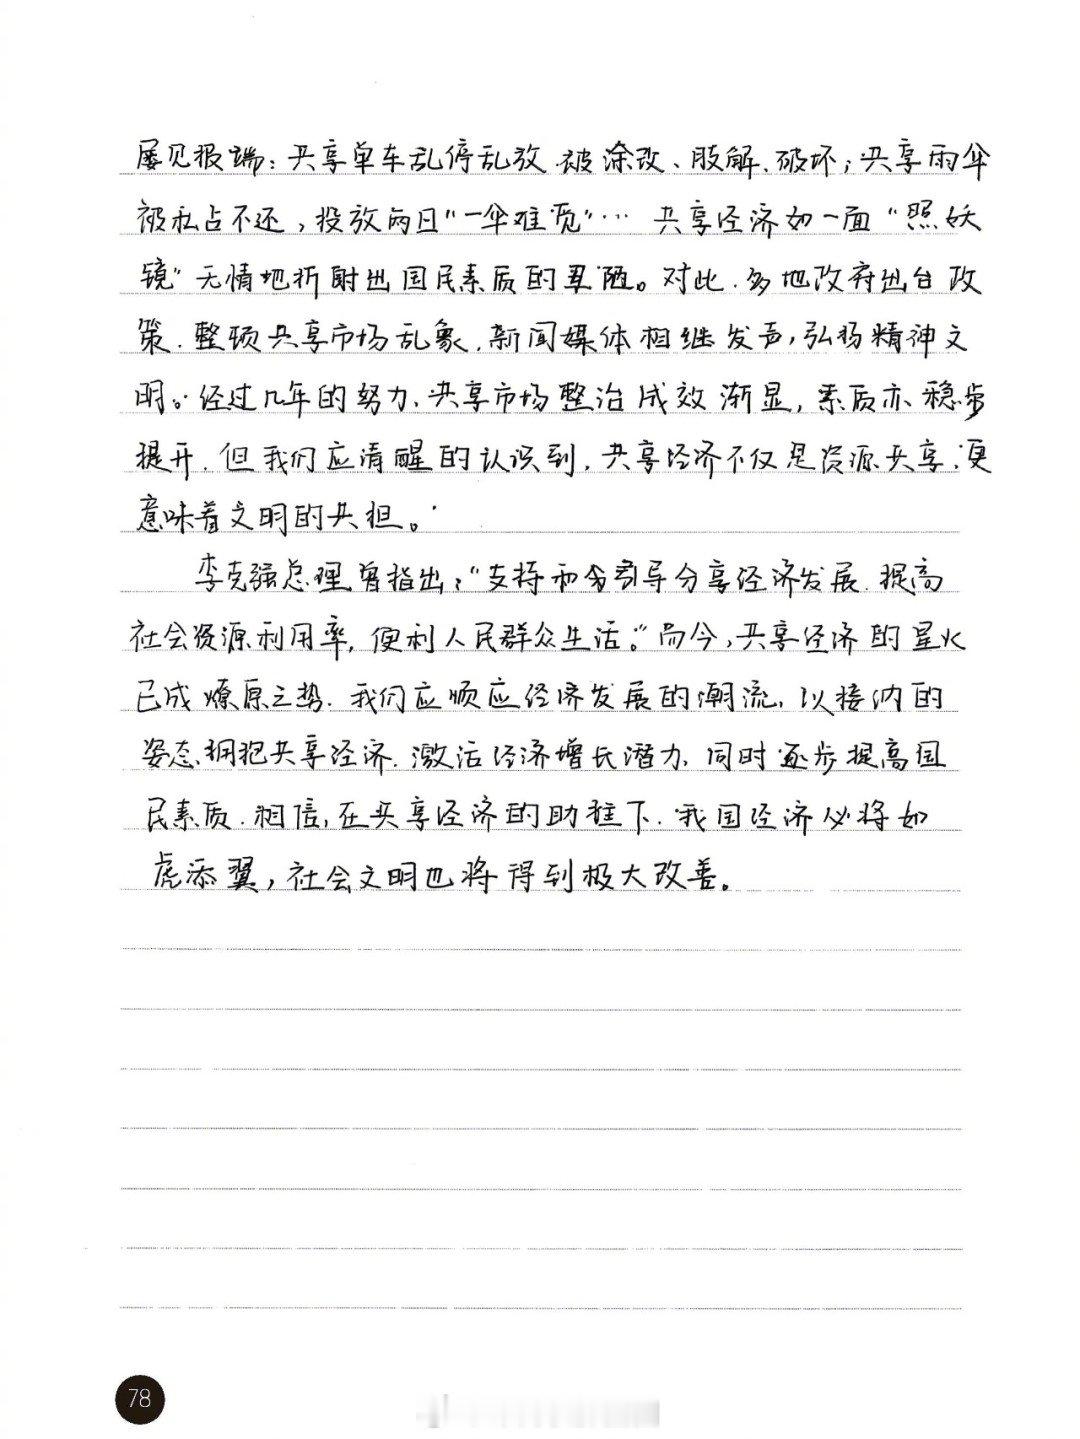 屡见报端：共享单车乱停乱放、被涂改、肢解、破坏；共享雨伞
被私占不还，投放两日“一伞难觅”… 共享经济如一面“照妖
镜”无情地折射出国民素质的丑陋。对此，多地政府出台政
策，整顿共享市场乱象，新闻媒体相继发声，弘扬精神文
明。经过几年的努力，共享市场整治成效渐显，素质亦稳步
提升，但我们应清醒的认识到，共享经济不仅是资源共享，更
意味着文明的共担。
李克强总理曾指出，“支持和引导分享经济发展，提高
社会资源利用率，便利人民群众生活。”而今，共享经济的星火
已成燎原之势，我们应顺应经济发展的潮流，以接纳的
姿态拥抱共享经济，激活经济增长潜力，同时逐步提高国
民素质，相信，在共享经济的助推下，我国经济必将如
虎添翼，社会文明也将得到极大改善。
78